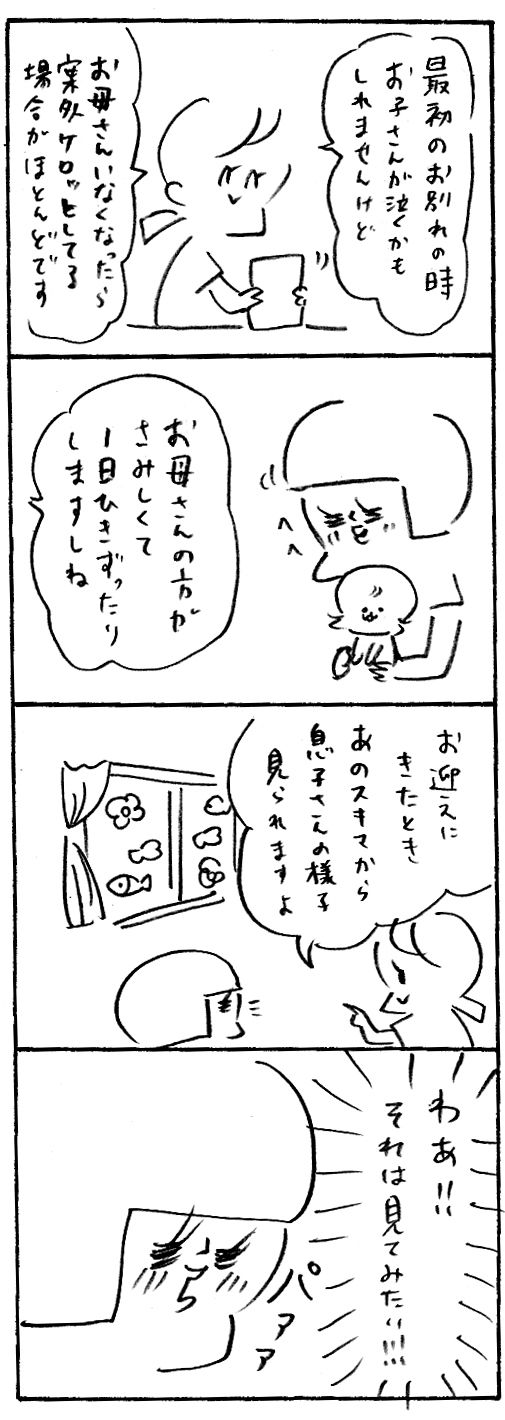 最初のお別れの時
お子さんが泣くかも
しれませんけど
お母さんいなくなったら
案外ケロッとしてる
場合がほとんどです
お母さんの方が
さみしくて
1日ひきずったり
しますしね
お迎えに
きたとき
あのスキマから
息子さんの様子
見られますよ
わあ!!
それは見てみたい!!!
パァァ